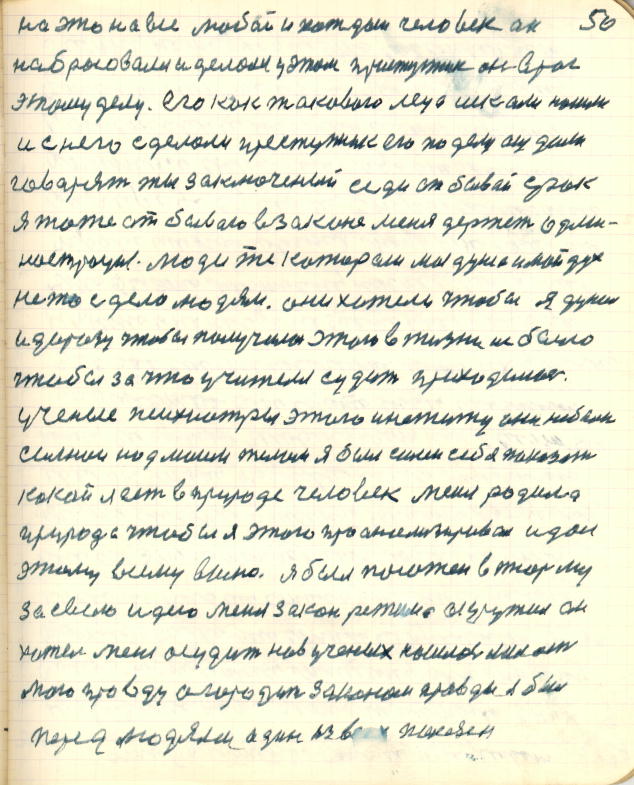 на это на все любой и каждый человек он 50
набросовали и делом у этом приступник он враг
этому делу. его как такового леуа искали нашли
и с него сделоли преступник его по делу осудили
говарят ты заключеный седи отбывай срок
я тоже отбываю в законе меня держет
люди те которали мой дух
не то сдело людям. они хотели чтобы я думал
и дорогу чтобы получилос этого в жизни не было
чтобы за что учителя судит приходилос.
ученые психиатры этого институту они не были
силнои над моим телом я был силен себя показат
какой я ест в природе человек меня родила
природа чтобы я этого проанализировал и дал
этому всему время. я был посожен в тюрму
за свою идею меня закон режима окружил он
хотел меня осудит но в ученых нашлос
мою правду огородит законом правды я был
перед людями один из всех полезен